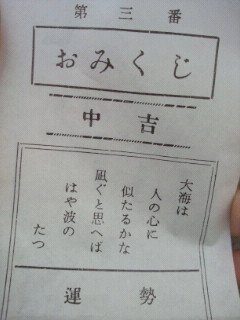 第三番
おみくじ
中吉
大海は
人の心に
似たるかな
凪ぐと思へば
はや波の
たつ
運勢